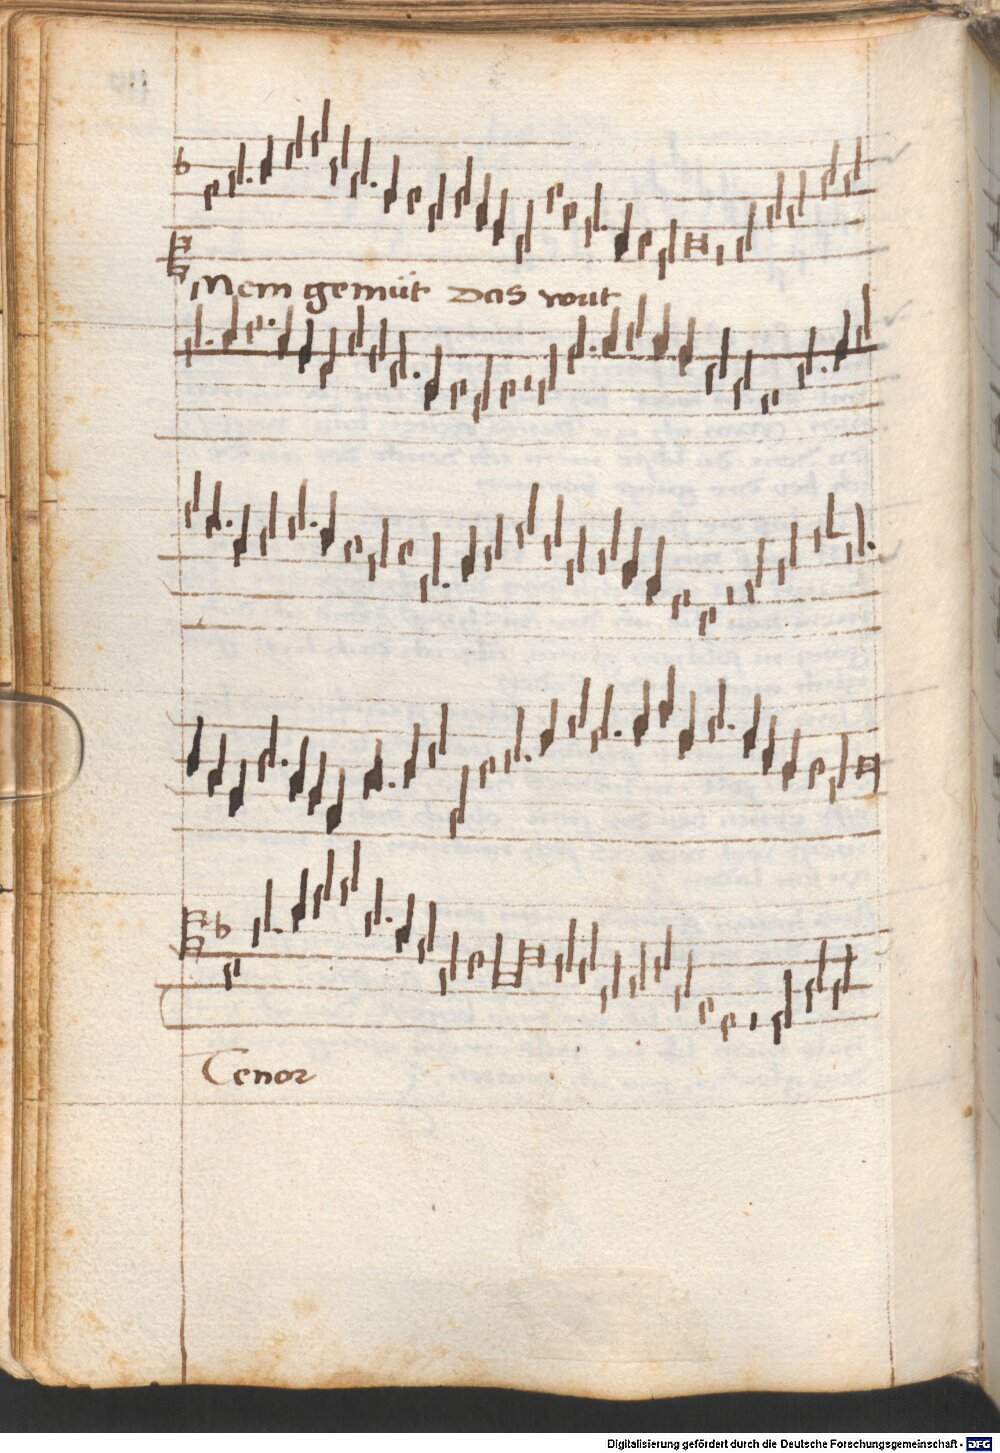 Mein gemüt das wüt
Tenor
Digitalisierung gefördert durch die Deutsche Forschungsgemeinschaft - DFG